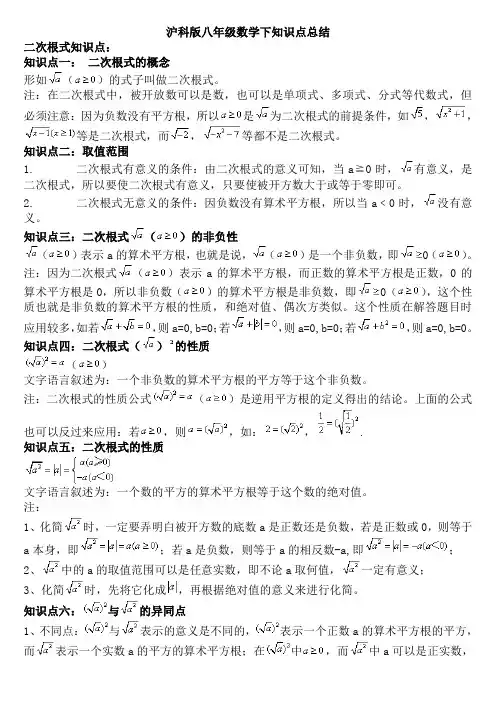 沪科版八年级数学下知识点总结
二次根式知识点：
知识点一： 二次根式的概念
形如√a（a≥0）的式子叫做二次根式。
注：在二次根式中，被开放数可以是数，也可以是单项式、多项式、分式等代数式，但
必须注意：因为负数没有平方根，所以a≥0是√a为二次根式的前提条件，如√5，√(x²+1)，
√(x-1)(x≥1)等是二次根式，而√-2，√(-x²-7)等都不是二次根式。
知识点二：取值范围
1. 二次根式有意义的条件：由二次根式的意义可知，当a≧0时，√a有意义，是
二次根式，所以要使二次根式有意义，只要使被开方数大于或等于零即可。
2. 二次根式无意义的条件：因负数没有算术平方根，所以当a﹤0时，√a没有意
义。
知识点三：二次根式√a（a≥0）的非负性
√a（a≥0）表示a的算术平方根，也就是说，√a（a≥0）是一个非负数，即√a≥0（a≥0）。
注：因为二次根式√a（a≥0）表示a的算术平方根，而正数的算术平方根是正数，0的
算术平方根是0，所以非负数（a≥0）的算术平方根是非负数，即√a≥0（a≥0），这个性
质也就是非负数的算术平方根的性质，和绝对值、偶次方类似。这个性质在解答题目时
应用较多，如若√a+√b=0，则a=0,b=0；若√a+|b|=0，则a=0,b=0；若√a+b²=0，则a=0,b=0。
知识点四：二次根式（√a）²的性质
(√a)²=a（a≥0）
文字语言叙述为：一个非负数的算术平方根的平方等于这个非负数。
注：二次根式的性质公式(√a)²=a（a≥0）是逆用平方根的定义得出的结论。上面的公式
也可以反过来应用：若a≥0，则a=(√a)²，如：2=(√2)²，1/2=(√(1/2))².
知识点五：二次根式的性质
√a²=|a|={a(a≥0) -a(a<0)
文字语言叙述为：一个数的平方的算术平方根等于这个数的绝对值。
注：
1、化简√a²时，一定要弄明白被开方数的底数a是正数还是负数，若是正数或0，则等于
a本身，即√a²=|a|=a(a≥0)；若a是负数，则等于a的相反数-a,即√a²=|a|=-a(a<0)；
2、√a²中的a的取值范围可以是任意实数，即不论a取何值，√a²一定有意义；
3、化简√a²时，先将它化成|a|，再根据绝对值的意义来进行化简。
知识点六：(√a)²与√a²的异同点
1、不同点：(√a)²与√a²表示的意义是不同的，(√a)²表示一个正数a的算术平方根的平方，
而√a²表示一个实数a的平方的算术平方根；在(√a)²中a≥0，而√a²中a可以是正实数，